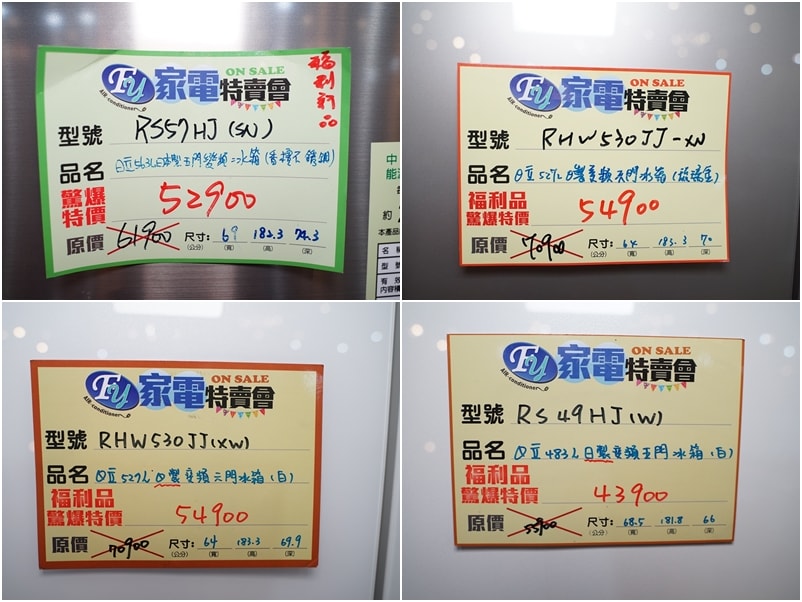 福利新品
Fu 家電特賣會
ON SALE
AIR-conditioner
型號 RS57HJ(SN)
品名 日立563L日本製五門變頻冰箱(香檳不銹鋼)
驚爆特價 52900
原價 61900 尺寸:(公分) 69(寬) 183.3(高) 74.3(深)
Fu 家電特賣會
ON SALE
AIR-conditioner
型號 RHW530JJ-XN
品名 日立527L日製變頻六門冰箱(琉璃金)
福利品
驚爆特價 54900
原價 70900 尺寸:(公分) 64(寬) 183.3(高) 70(深)
Fu 家電特賣會
ON SALE
AIR-conditioner
型號 RHW530JJ(XW)
品名 日立527L日製變頻六門冰箱(白)
福利品
驚爆特價 54900
原價 70900 尺寸:(公分) 64(寬) 183.3(高) 69.9(深)
Fu 家電特賣會
ON SALE
AIR-conditioner
型號 RS49HJ(W)
品名 日立483L日製變頻五門冰箱(白)
福利品
驚爆特價 43900
原價 55900 尺寸:(公分) 68.5(寬) 181.8(高) 66(深)